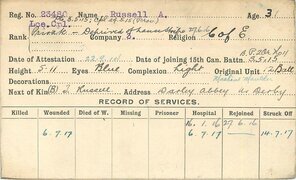 Reg. No. 23480 Name Russell A. Age 3
Lce.Cpl.
Rank Private - Deprived of Lance Stripe Company 3. Religion C of E
Date of Attestation 22.5.15 Date of Joining 13th Can. Battn. 3.5.15
Height 5.11 Eyes Blue Complexion Light Original Unit
Decorations
Next of Kin T. Russell Address Darley Abbey Nr Derby
RECORD OF SERVICES.
Killed Wounded Died of W. Missing Prisoner Hospital Rejoined Struck Off
16.1.16 27.6.16
6.7.17 6.7.17 14.7.17